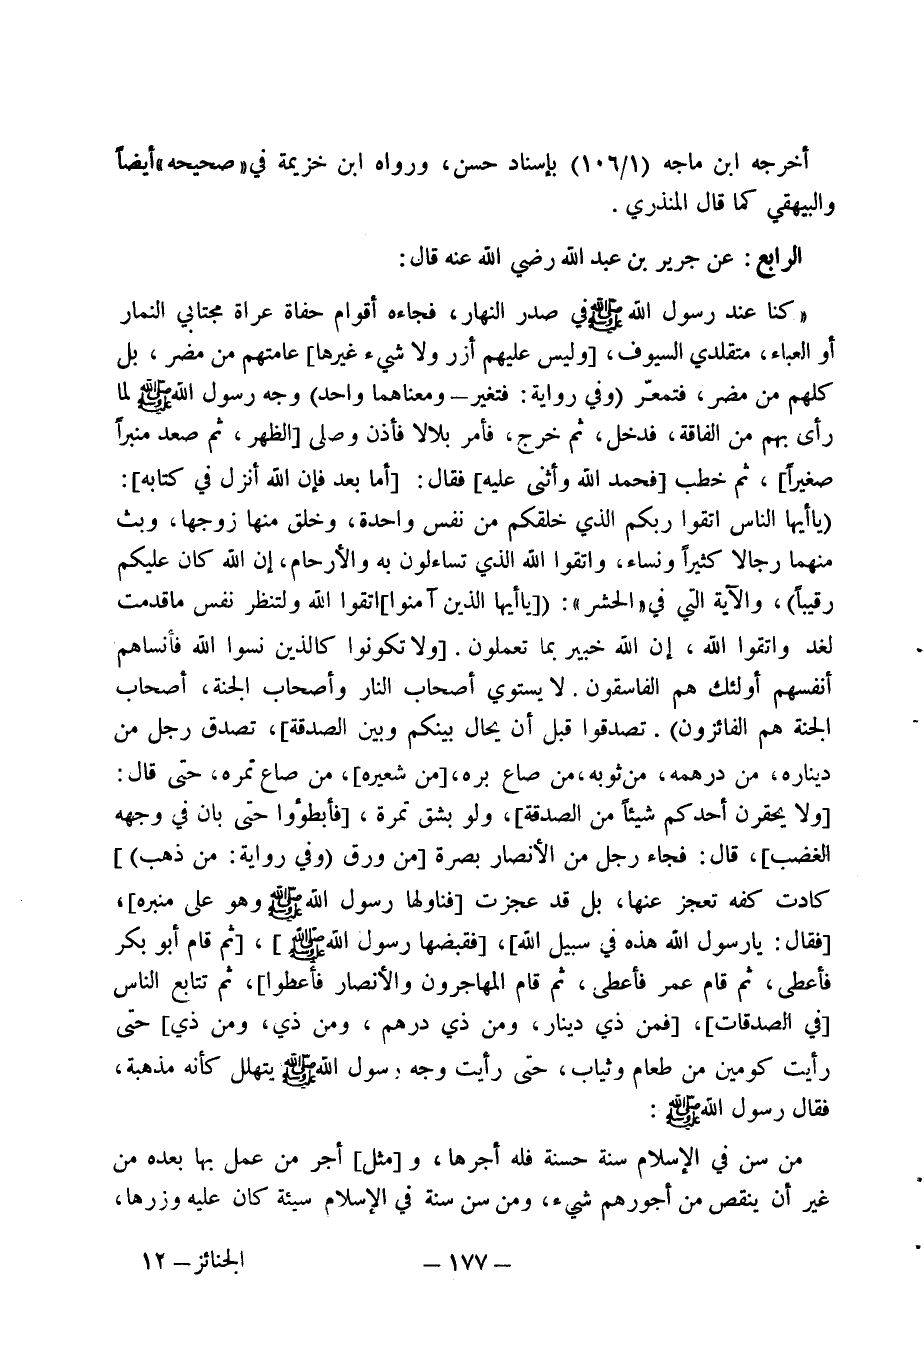 أخرجه ابن ماجه (١٠٦/١) بإسناد حسن، ورواه ابن خزيمة في «صحيحه» أيضاً
والبيهقي كما قال المنذري .
الرابع : عن جرير بن عبد الله رضي الله عنه قال :
« كنا عند رسول الله ﷺ في صدر النهار، فجاءه أقوام حفاة عراة مجتابي النمار
أو العباء، متقلدي السيوف، [وليس عليهم أزر ولا شيء غيرها] عامتهم من مضر ، بل
كلهم من مضر، فتمعّر (وفي رواية : فتغير ـ ومعناهما واحد) وجه رسول الله ﷺ لما
رأى بهم من الفاقة، فدخل، ثم خرج، فأمر بلالا فأذن وصلى [الظهر ، ثم صعد منبراً
صغيراً] ، ثم خطب [فحمد الله وأثنى عليه] فقال : [أما بعد فإن الله أنزل في كتابه] :
(ياأيها الناس اتقوا ربكم الذي خلقكم من نفس واحدة، وخلق منها زوجها، وبث
منهما رجالا كثيراً ونساء، واتقوا الله الذي تساءلون به والأرحام، إن الله كان عليكم
رقيباً) ، والآية التي في «الحشر» : ([ياأيها الذين آمنوا] اتقوا الله ولتنظر نفس ماقدمت
لغد واتقوا الله ، إن الله خبير بما تعملون . [ولا تكونوا كالذين نسوا الله فأنساهم
أنفسهم أولئك هم الفاسقون . لا يستوي أصحاب النار وأصحاب الجنة، أصحاب
الجنة هم الفائزون) . تصدقوا قبل أن يحال بينكم وبين الصدقة]، تصدق رجل من
ديناره، من درهمه، من ثوبه، من صاع بره، [من شعيره]، من صاع تمره، حتى قال :
[ولا يحقرن أحدكم شيئاً من الصدقة]، ولو بشق تمرة ، [فأبطؤوا حتى بان في وجهه
الغضب]، قال : فجاء رجل من الأنصار بصرة [من ورق (وفي رواية : من ذهب) ]
كادت كفه تعجز عنها، بل قد عجزت [فناولها رسول الله ﷺ وهو على منبره]،
[فقال : يارسول الله هذه في سبيل الله]، [فقبضها رسول الله ﷺ ] ، [ثم قام أبو بكر
فأعطى، ثم قام عمر فأعطى، ثم قام المهاجرون والأنصار فأعطوا]، ثم تتابع الناس
[في الصدقات]، [فمن ذي دينار، ومن ذي درهم ، ومن ذي، ومن ذي] حتى
رأيت كومين من طعام وثياب، حتى رأيت وجه رسول الله ﷺ يتهلل كأنه مذهبة،
فقال رسول الله ﷺ :
من سن في الإسلام سنة حسنة فله أجرها، و [مثل] أجر من عمل بها بعده من
غير أن ينقص من أجورهم شيء، ومن سن سنة في الإسلام سيئة كان عليه وزرها،
ـ ١٧٧ ـ
الجنائز ـ ١٢